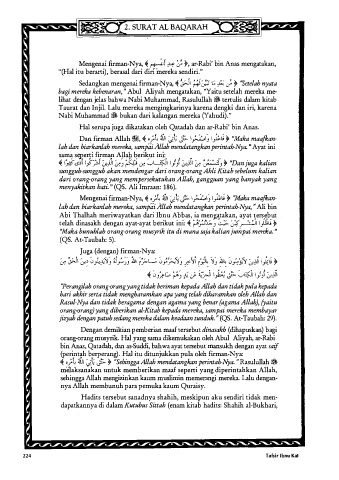 2. SURAT AL BAQARAH
Mengenai firman-Nya, ﴿ مِّنْ عِندِ أَنفُسِهِم ﴾, ar-Rabi' bin Anas mengatakan,
"(Hal itu berarti), berasal dari diri mereka sendiri."
Sedangkan mengenai firman-Nya, ﴿ مِّن بَعْدِ مَا تَبَيَّنَ لَهُمُ الْحَقُّ ﴾ "Setelah nyata
bagi mereka kebenaran," Abul Aliyah mengatakan, "Yaitu setelah mereka me-
lihat dengan jelas bahwa Nabi Muhammad, Rasulullah ﷺ tertulis dalam kitab
Taurat dan Injil. Lalu mereka mengingkarinya karena dengki dan iri, karena
Nabi Muhammad ﷺ bukan dari kalangan mereka (Yahudi)."
Hal serupa juga dikatakan oleh Qatadah dan ar-Rabi' bin Anas.
Dan firman Allah ﷻ, ﴿ فَاعْفُوا وَاصْفَحُوا حَتَّىٰ يَأْتِيَ اللَّهُ بِأَمْرِهِ ﴾ "Maka maafkan-
lah dan biarkanlah mereka, sampai Allah mendatangkan perintah-Nya." Ayat ini
sama seperti firman Allah berikut ini:
﴿ وَلَتَسْمَعُنَّ مِنَ الَّذِينَ أُوتُوا الْكِتَابَ مِن قَبْلِكُمْ وَمِنَ الَّذِينَ أَشْرَكُوا أَذًى كَثِيرًا ﴾ "Dan juga kalian
sungguh-sungguh akan mendengar dari orang-orang Ahli Kitab sebelum kalian
dari orang-orang yang mempersekutukan Allah, gangguan yang banyak yang
menyakitkan hati." (QS. Ali Imraan: 186).
Mengenai firman-Nya, ﴿ فَاعْفُوا وَاصْفَحُوا حَتَّىٰ يَأْتِيَ اللَّهُ بِأَمْرِهِ ﴾ "Maka maafkan-
lah dan biarkanlah mereka, sampai Allah mendatangkan perintah-Nya," Ali bin
Abi Thalhah meriwayatkan dari Ibnu Abbas, ia mengatakan, ayat tersebut
telah dinasakh dengan ayat-ayat berikut ini: ﴿ فَاقْتُلُوا الْمُشْرِكِينَ حَيْثُ وَجَدتُّمُوهُمْ ﴾
"Maka bunuhlah orang-orang musyrik itu di mana saja kalian jumpai mereka."
(QS. At-Taubah: 5).
Juga (dengan) firman-Nya:
﴿ قَاتِلُوا الَّذِينَ لَا يُؤْمِنُونَ بِاللَّهِ وَلَا بِالْيَوْمِ الْآخِرِ وَلَا يُحَرِّمُونَ مَا حَرَّمَ اللَّهُ وَرَسُولُهُ وَلَا يَدِينُونَ دِينَ الْحَقِّ مِنَ
الَّذِينَ أُوتُوا الْكِتَابَ حَتَّىٰ يُعْطُوا الْجِزْيَةَ عَن يَدٍ وَهُمْ صَاغِرُونَ ﴾
"Perangilah orang-orang yang tidak beriman kepada Allah dan tidak pula kepada
hari akhir serta tidak mengharamkan apa yang telah diharamkan oleh Allah dan
Rasul-Nya dan tidak beragama dengan agama yang benar (agama Allah), (yaitu
orang-orang) yang diberikan al-Kitab kepada mereka, sampai mereka membayar
jizyah dengan patuh sedang mereka dalam keadaan tunduk." (QS. At-Taubah: 29).
Dengan demikian pemberian maaf tersebut dinasakh (dihapuskan) bagi
orang-orang musyrik. Hal yang sama dikemukakan oleh Abul Aliyah, ar-Rabi'
bin Anas, Qatadah, dan as-Suddi, bahwa ayat tersebut mansukh dengan ayat saif
(perintah berperang). Hal itu ditunjukkan pula oleh firman-Nya:
﴿ حَتَّىٰ يَأْتِيَ اللَّهُ بِأَمْرِهِ ﴾ "Sehingga Allah mendatangkan perintah-Nya." Rasulullah ﷺ
melaksanakan untuk memberikan maaf seperti yang diperintahkan Allah,
sehingga Allah mengizinkan kaum muslimin memerangi mereka. Lalu dengan-
nya Allah membunuh para pemuka kaum Quraisy.
Hadits tersebut sanadnya shahih, meskipun aku sendiri tidak men-
dapatkannya di dalam Kutubus Sittah (enam kitab hadits: Shahih al-Bukhari,
224
Tafsir Ibnu Katsir